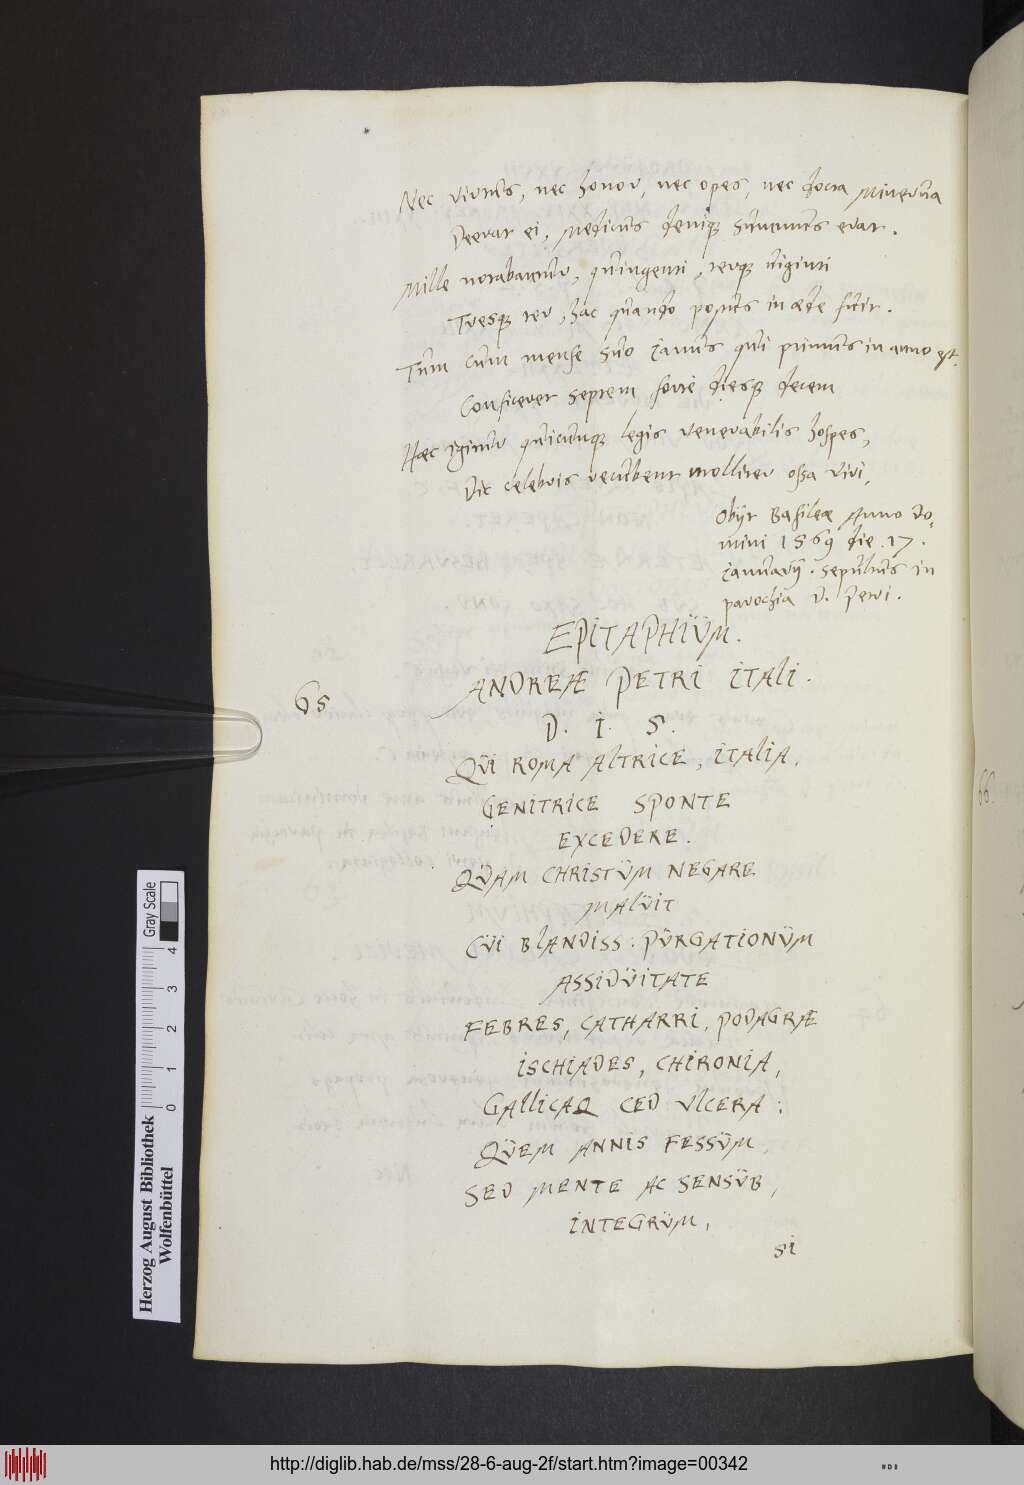 Nec virtus, nec honor, nec opes, nec docta Minerva
Deerat ei, Medicus deniq; summus erat.
Mille notabantur, quingenti, terq; viginti
Tresq; ter, hac quando positus in æde fuit.
Tum cum mense suo Janus qui primus in anno est,
Conficeret septem forte diesq; decem
Hæc igitur quicunq; legis venerabilis hospes,
Dic celebris recubent molliter ossa viri,
Obijt Basileæ Anno Do-
mini 1569 die .17.
Januarij . sepultus in
parochia D. Petri.
EPITAPHIÜM.
65
ANDREÆ PETRI ITALI.
D. I. S.
QÜI ROMA ALTRICE, ITALIA,
GENITRICE SPONTE
EXCEDERE.
QÜAM CHRISTÜM NEGARE
MALÜIT
CÜI BLANDISS: PÜRGATIONÜM
ASSIDÜITATE
FEBRES, CATHARRI, PODAGRÆ
ISCHIADES, CHIRONIA,
GALLICAQ CED ULCERA:
QÜEM ANNIS FESSÜM,
SED MENTE AC SENSÜB,
INTEGRÜM,
SI
66.
Gray Scale
0 1 2 3 4
Herzog August Bibliothek
Wolfenbüttel
http://diglib.hab.de/mss/28-6-aug-2f/start.htm?image=00342